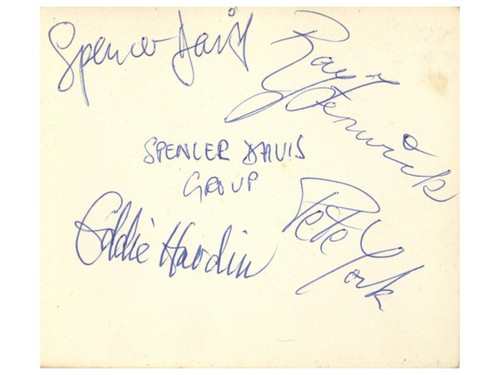 Spencer Davis
Ray Fenwick
SPENCER DAVIS
GROUP
Eddie Hardin
Pete York